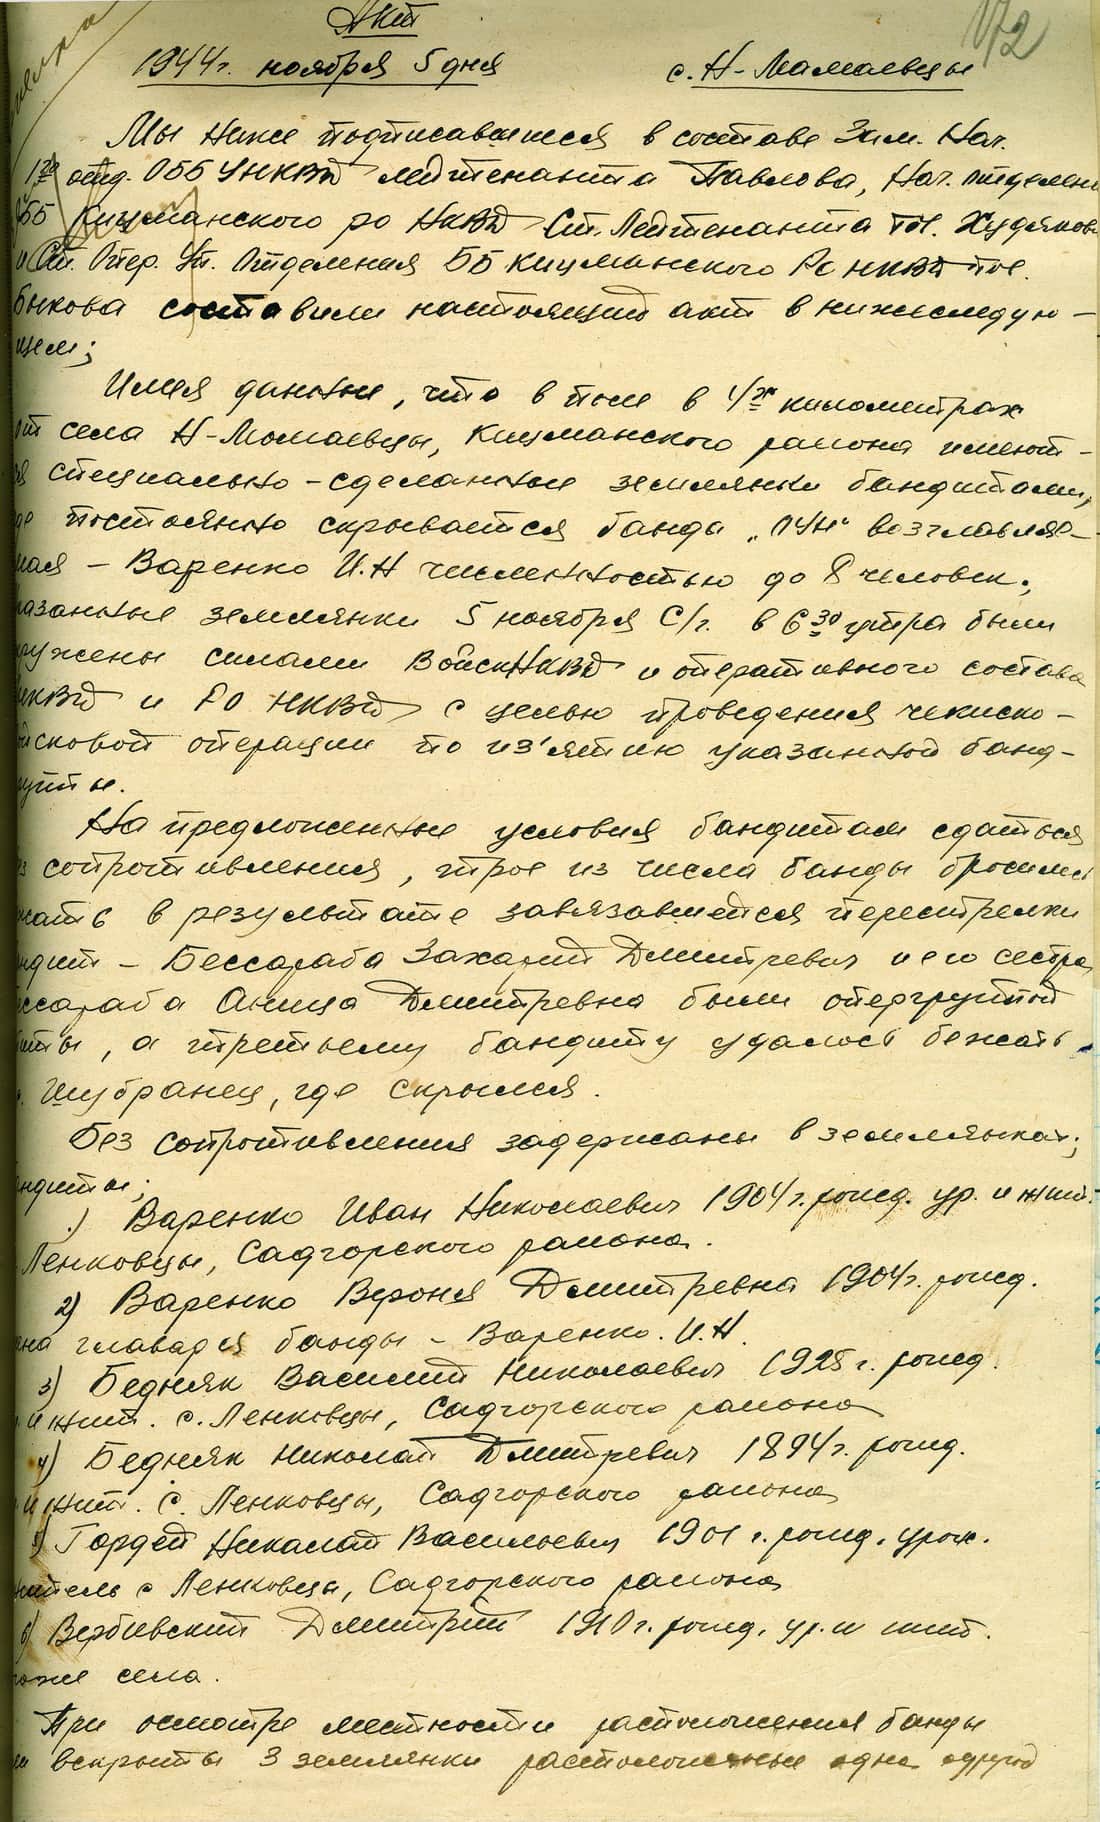 172
Акт
1944г. ноября 5 дня с. Н-Мамаевцы
Мы ниже подписавшиеся в составе Зам. Нач.
1го отд. ОББ УНКВД лейтенанта Павлова, Нач. отделени
ББ Кицманского ро НКВД Ст. Лейтенанта тов. Худяков
и Ст. Опер. Уп. Отделения ББ Кицманского Ро НКВД тов.
Быкова составили настоящий акт в нижеследую-
щем;
Имея данные, что в поле в 4х километрах
от села Н-Момаевцы, Кицманского района имеют-
ся специально-сделанные землянки бандитами,
где постоянно скрывается банда „ОУН" возглавляе-
мая - Варенко И.Н численностью до 8 человек.,
казанные землянки 5 ноября С/г. в 6 30 утра были
ружены силами Войск НКВД и оперативного состава
НКВД и РО НКВД с целью проведения чекиско-
йсковой операции по из'ятию указанной банд-
уппы.
На предложенные условия бандитам сдаться
ез сопротивления, трое из числа банды бросились
жать в результате завязавшейся перестрелки
ндит - Бессараба Захарий Дмитревич и его сестра
ссараба Аница Дмитревна были опергруппой
иты, а третьему бандиту удалось бежать
с. Шубранец, где скрылся.
Без сопротивления задержаны в землянках;
ндиты;
1) Варенко Иван Николаевич 1904г. рожд. ур. и жит.
Ленковцы, Садгорского района.
2) Варенко Верония Дмитревна 1904г. рожд.
ена главаря банды - Варенко. И.Н.
3) Бедняк Василий Николаевич 1925 г. рожд.
и жит. с. Ленковцы, Садгорского района
4) Бедняк Николай Дмитревич 1894г. рожд.
и жит. с. Ленковцы, Садгорского района
5) Гордей Николай Васильевич 1901 г. рожд. урож.
житель с Ленковцы, Садгорского района
6) Вербивский Дмитрий 1910г. рожд. ур. и жит.
тоже села.
При осмотре местности расположения банды
ли вскрыты 3 землянки расположенные одна одной